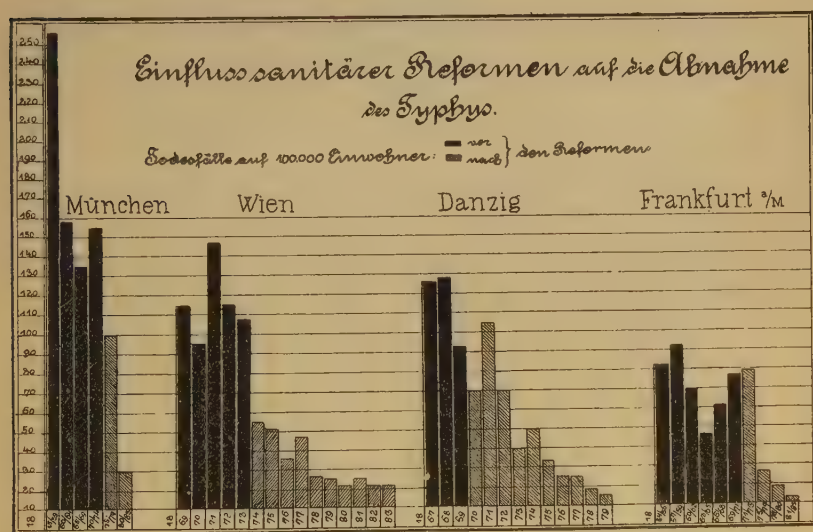 Einfluss sanitärer Reformen auf die Abnahme
des Typhus.
Todesfälle auf 100.000 Einwohner: vor
nach } den Reformen
München Wien Danzig Frankfurt a/M
250
240
230
220
210
200
190
180
170
160
150
140
130
120
110
100
90
80
70
60
50
40
30
20
10
18
18 69 70 71 72 73 74 75 76 77 78 79 80 81 82 83
18 67 68 69 70 71 72 73 74 75 76 77 78 79
18